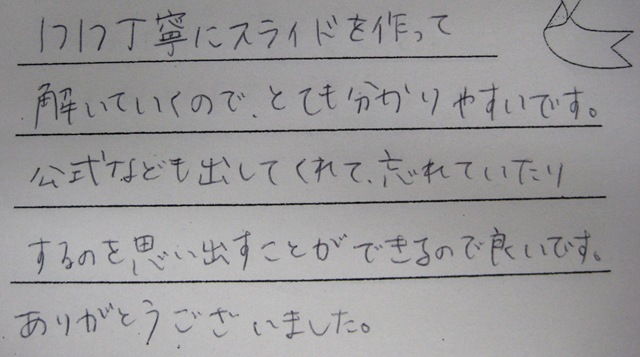 1つ1つ丁寧にスライドを作って
解いていくので、とても分かりやすいです。
公式なども出してくれて、忘れていたり
するのを思い出すことができるので良いです。
ありがとうございました。